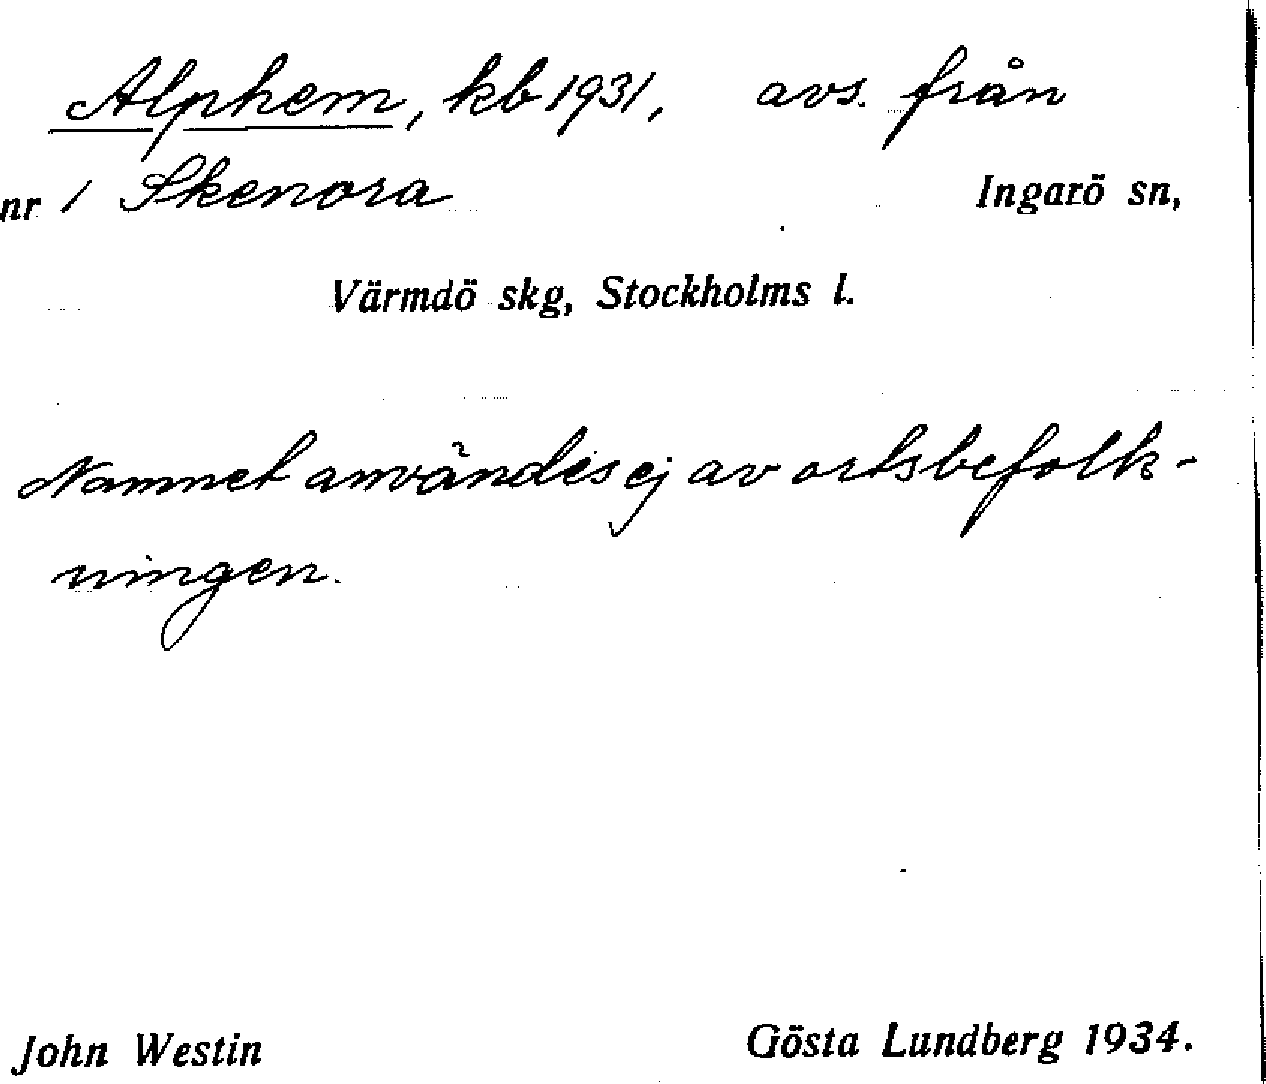 Alphem, kb 1931, avs. från
nr 1 Skenora Ingarö sn,
Värmdö skg, Stockholms l.
Namnet användes ej av ortsbefolk-
ningen.
John Westin Gösta Lundberg 1934.